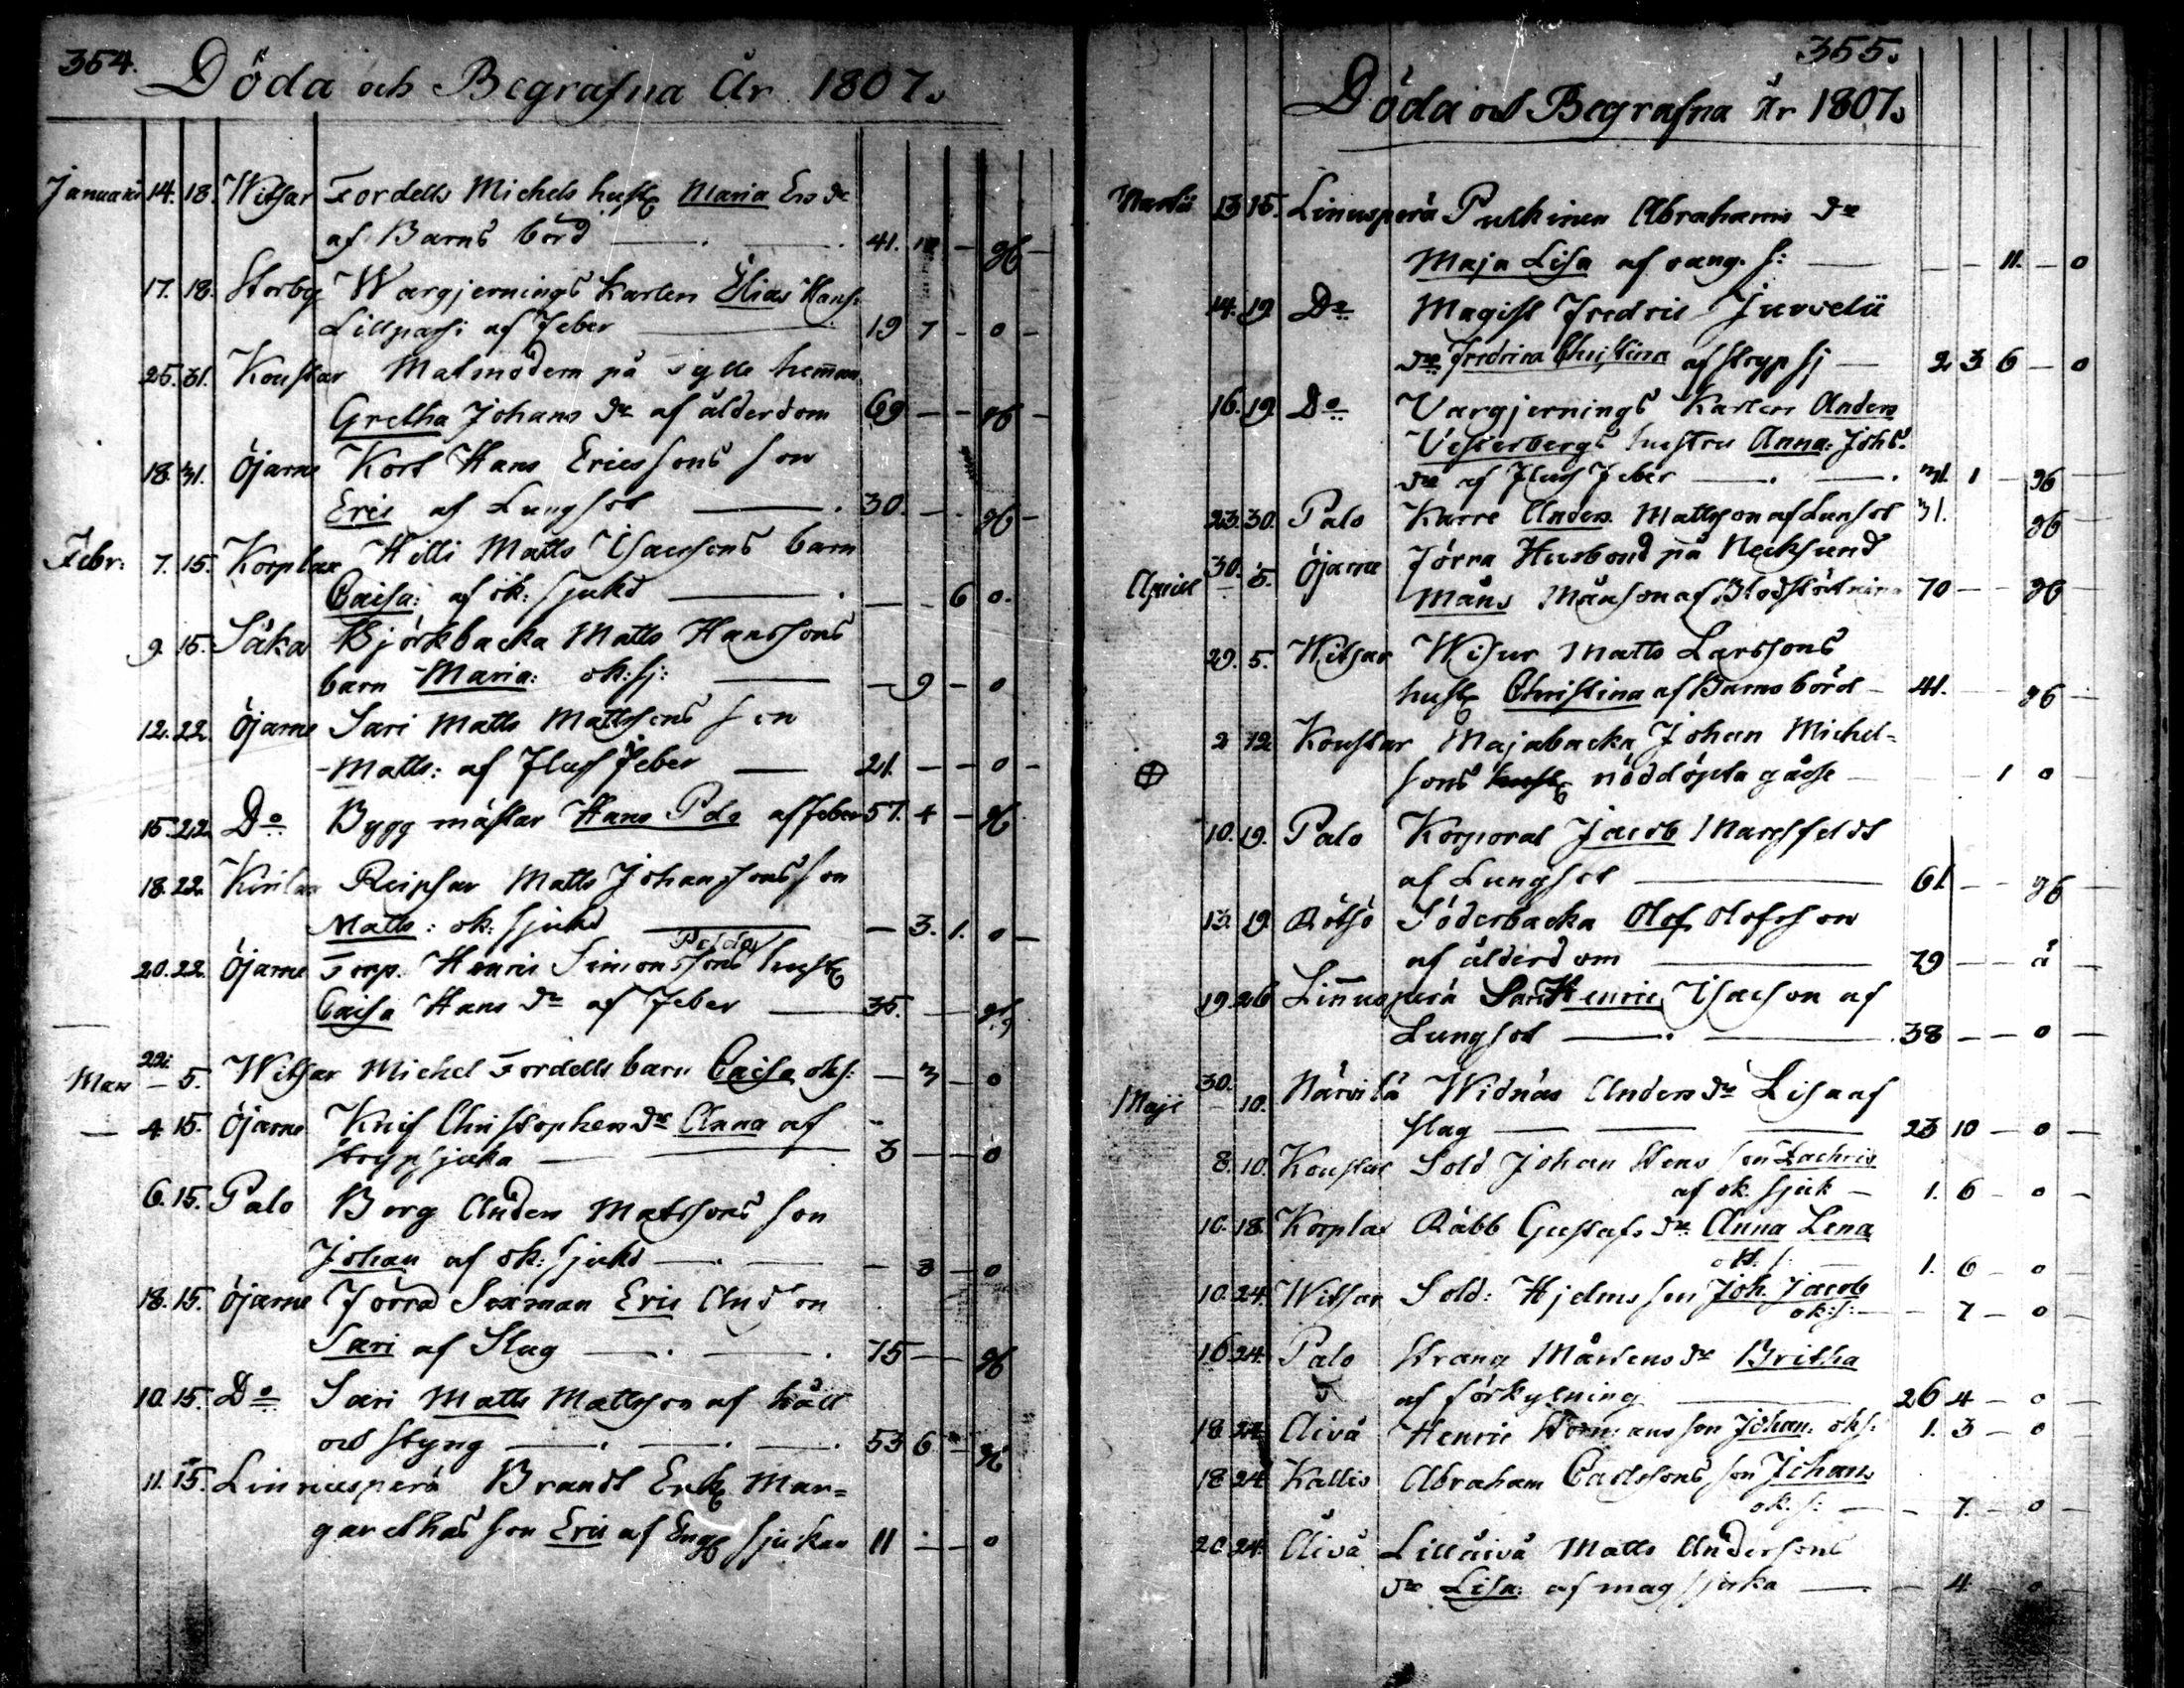 354.
Döda och Begrafna År 1807.
Januarii 14. 18. Witsar Fordells Michels hust Maria Ers dr
af Barns börd 41. 10 - gb -
17. 18. Storby Wargjernings Karlen Elias Hans
af feber 19 7 - o -
25. 31. Koustar Matmodern på Sylle hemman
Gretha Johans dr af ålderdom 69 - - gb -
18. 31. Öjarne Kort Hans Ericssons son
Eric af Lungsot 30. - - gb -
Febr: 7. 15. Korplax Hilli Matts Isacsons barn
Caisa: af ok: sjukd - - 6 o.
9. 15. Sääkä Björkbacka Matts Hanssons
barn Maria: ok: sj: - 9 - o
12. 22. Öjarne Sari Matts Mattssons son
Matts: af Fluss feber 21. - - o -
15. 22. Do Bygg mästar Hans Palo af feber 57. 4 - gb
18. 22. Matts Johanssons son
Matts: ok: sjukd - 3. 1. o -
20. 22. Öjarne Torp. Henric Simonssons hust
Caisa Hans dr af feber 35. - gb
Mars 22. - 5. Witsar Michel Fordells barn Caisa ok s: - 3 - o
4. 15. Öjarne Knif Christophers dr Anna af
stryp sjuka 3 - - o
6. 15. Palo Borg Anders Matssons son
Johan af ok: sjukd - 3 - o
18. 15. Öjarne Jörra Sexman Eric And son
Sari af Slag 75 - - gb
10. 15. Do Sari Matts Mattsson af håll
och styng 53 6 - gb
11. 15. Linnusperä Brandt Enk Mar=
garethas son Eric af Eng sjukan 11 - - o
355.
Döda och Begrafna År 1807.
Martii 13 15. Linusperä Pulkinen Abrahams dr
Maja Lisa af s: - - 11. - o
14. 19 Do Magist Fredric Jurvelii
dr Fredrica Christina af stryp sj 2 3 6 - o
16. 19 Do Vargjernings Karlen Anders
Vesterbergs hustru Anna: Johs.
dr af Fluss feber 31. 1 - gb
23. 30. Palo Karre Anders Mattsson af Lunsot 31. gb
April 30. 5. Öjarne Jörra Husbond på Necksund
Måns Månson af Blodstörtning 70 - - gb
29. 5. Witsar Wisur Matts Larssons
hust Christina af Barns börd 41. - gb -
2 12 Koustar Majabacka Johan Michel=
sons nöddöpta gåsse - 1 o
10. 19. Palo Korporal Jacob Marsfeldt
af Lungsot 61 - - gb -
13. 19. Rötsö Söderbacka Olof Olofsson
af ålderdom 79 - - -
19. 26 Linnusperä Sari Henric Isacson af
Lungsot 38 - - o -
Maji 30. - 10. Närvilä Widnäs Anders dr Lisa af
slag 23 10 - o -
8. 10. Koustar Sold Johan Stens son Zachris
af ok. sjuk - 1. 6 - o -
10. 18. Korplax Rabb Gustafs dr Anna Lena
ok. s: 1. 6 - o -
10. 24. Witsar Sold: Hjelms son Joh. Jacob
ok: s: - 7 - o -
16 24. Palo Strang Mårtens dr Britha
af förkylning 26 4 - o -
18 24 Åivå Henric son Johan: ok s: 1. 3 - o
18 24 Kallis Abraham Carlssons son Johan
ok: s: - 7. - o -
20. 24. Åivå Lillåivå Matts Andersons
dr Lisa: af mag sjuka - 4 - o -